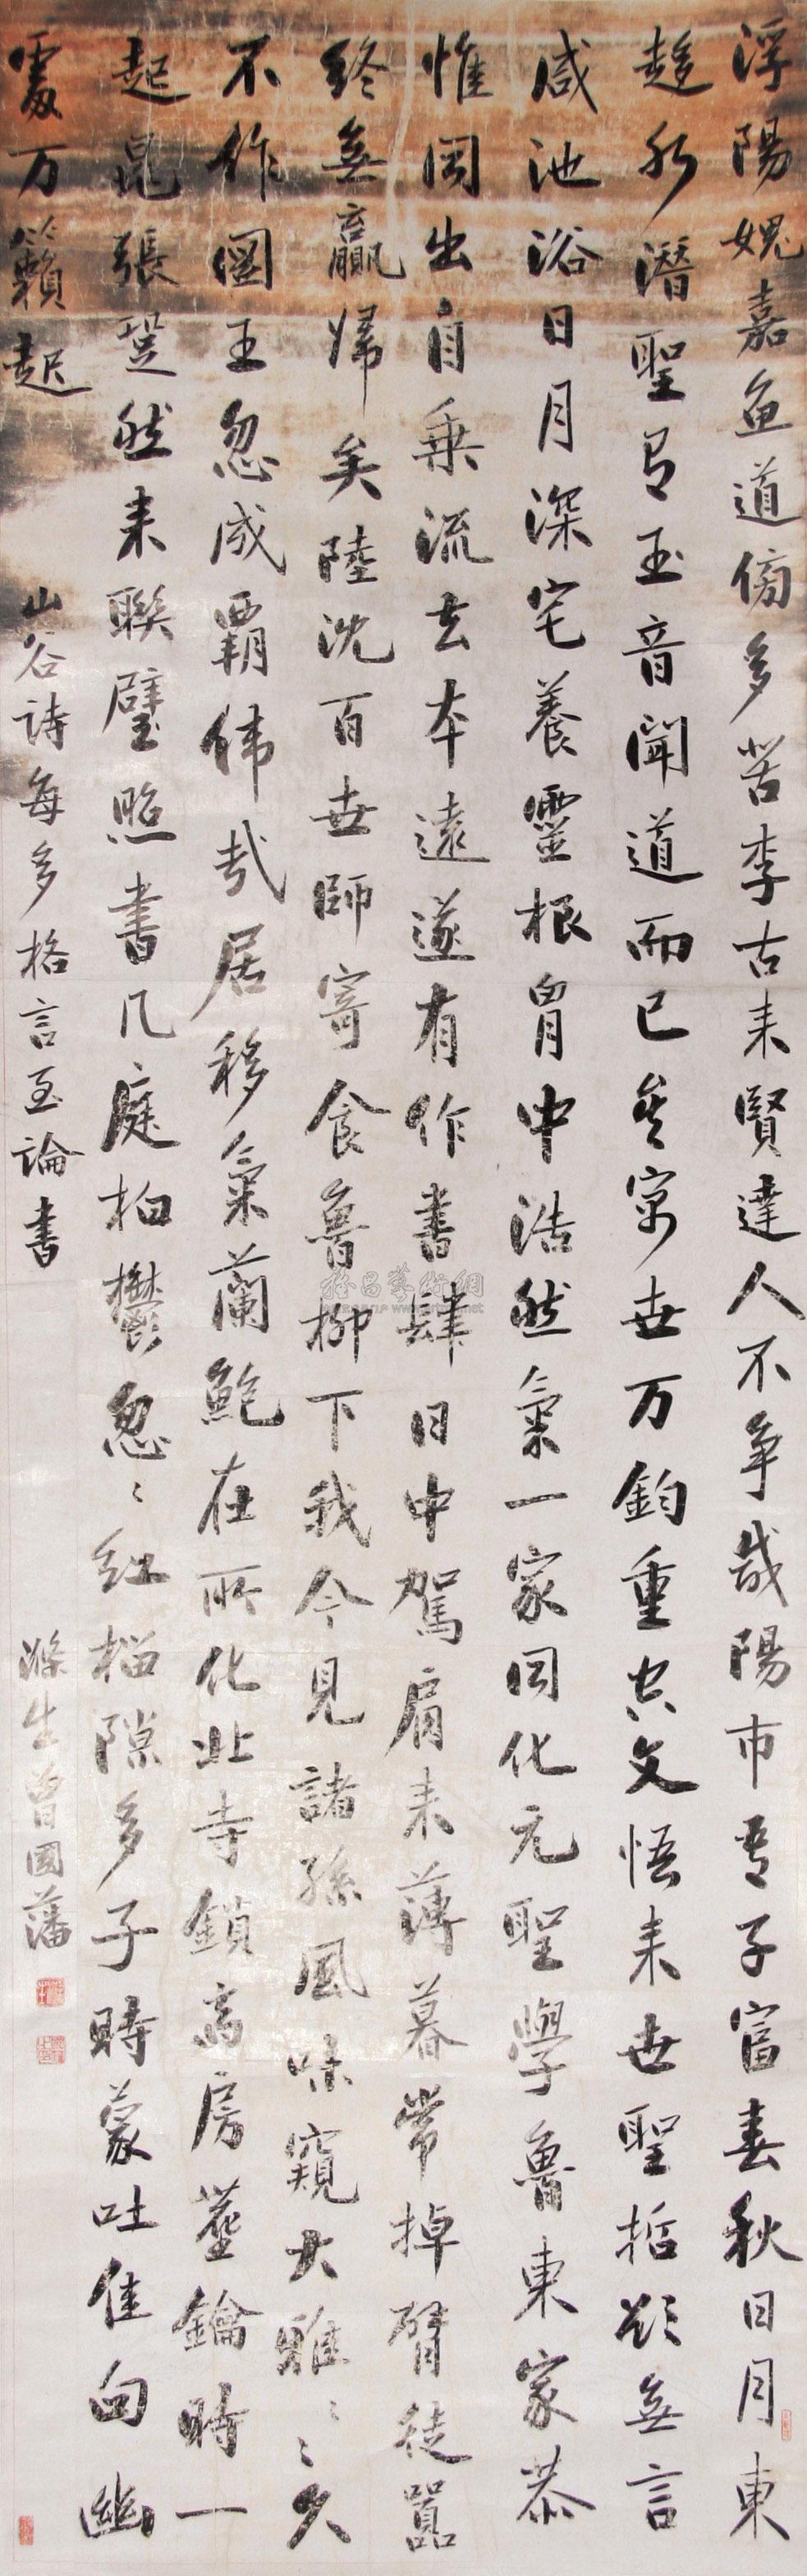 浮陽媿嘉魚道傍多苦李古来賢達人不争咸陽市吾子富春秋日月東
趍水潛聖有玉音聞道而已矣宰世万鈞重空文悟来世聖哲欲無言
咸池浴日月深宅養靈根胷中浩然氣一家同化元聖學魯東家恭
惟同出自乗流去本遠遂有作書肆日中駕肩来薄暮常掉臂徒囂
終無贏歸矣陸沈百世師寄食魯柳下我今見諸孫風味窺大雅〻〻久
不作圖王忽成霸偉哉居移氣蘭鮑在所化北寺鎖高房塵鑰時一
起晁張跫然来聯璧照書几庭柏鬱忽〻紅榴隙多子時蒙吐佳句幽
處万籟起
山谷詩每多格言至論書
滌生曾國藩